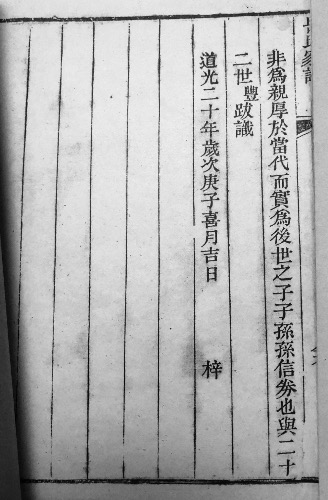 非爲親厚於當代而實爲後世之子子孫孫信劵也與二十
二世豐跋議
道光二十年歲次庚子喜月吉日 梓